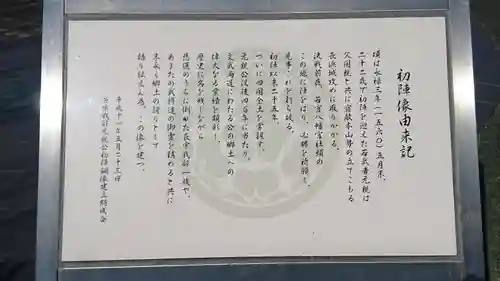 初陣像由来記
頃は永禄三年(一五六〇)五月末、
二十二歳で初陣を迎えた若武者元親は
父国親と共に宿敵本山勢の立てこもる
長浜城攻めに取りかかる。
決戦前夜、若宮八幡宮社頭の
この地に陣をはり、必勝を祈願し
見事これを打ち破る。
初陣以来二十五年、
ついに四国全土を掌握す。
元親公没後四百年に当たり、
文武両道にわたる公の郷土への
偉大なる業績を顕彰し、
歴史に名を残しながら
悲運のうちに倒れた長宗我部一族や、
あまたの武将達の御霊を鎮めると共に
末永く郷土の誇りとして
語り伝えん為、この像を建つ。
平成十一年五月二十三日
長宗我部元親公初陣銅像建立期成会